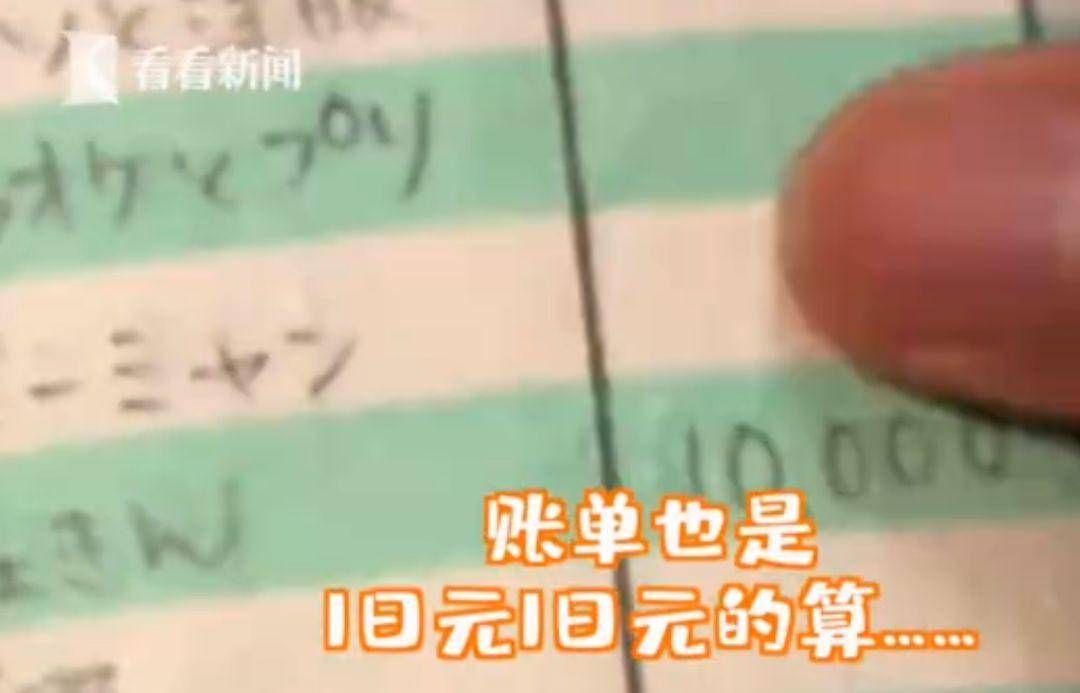 看看新闻
オケとプリ
ーミヤン
きん
10000
账单也是
1日元1日元的算……